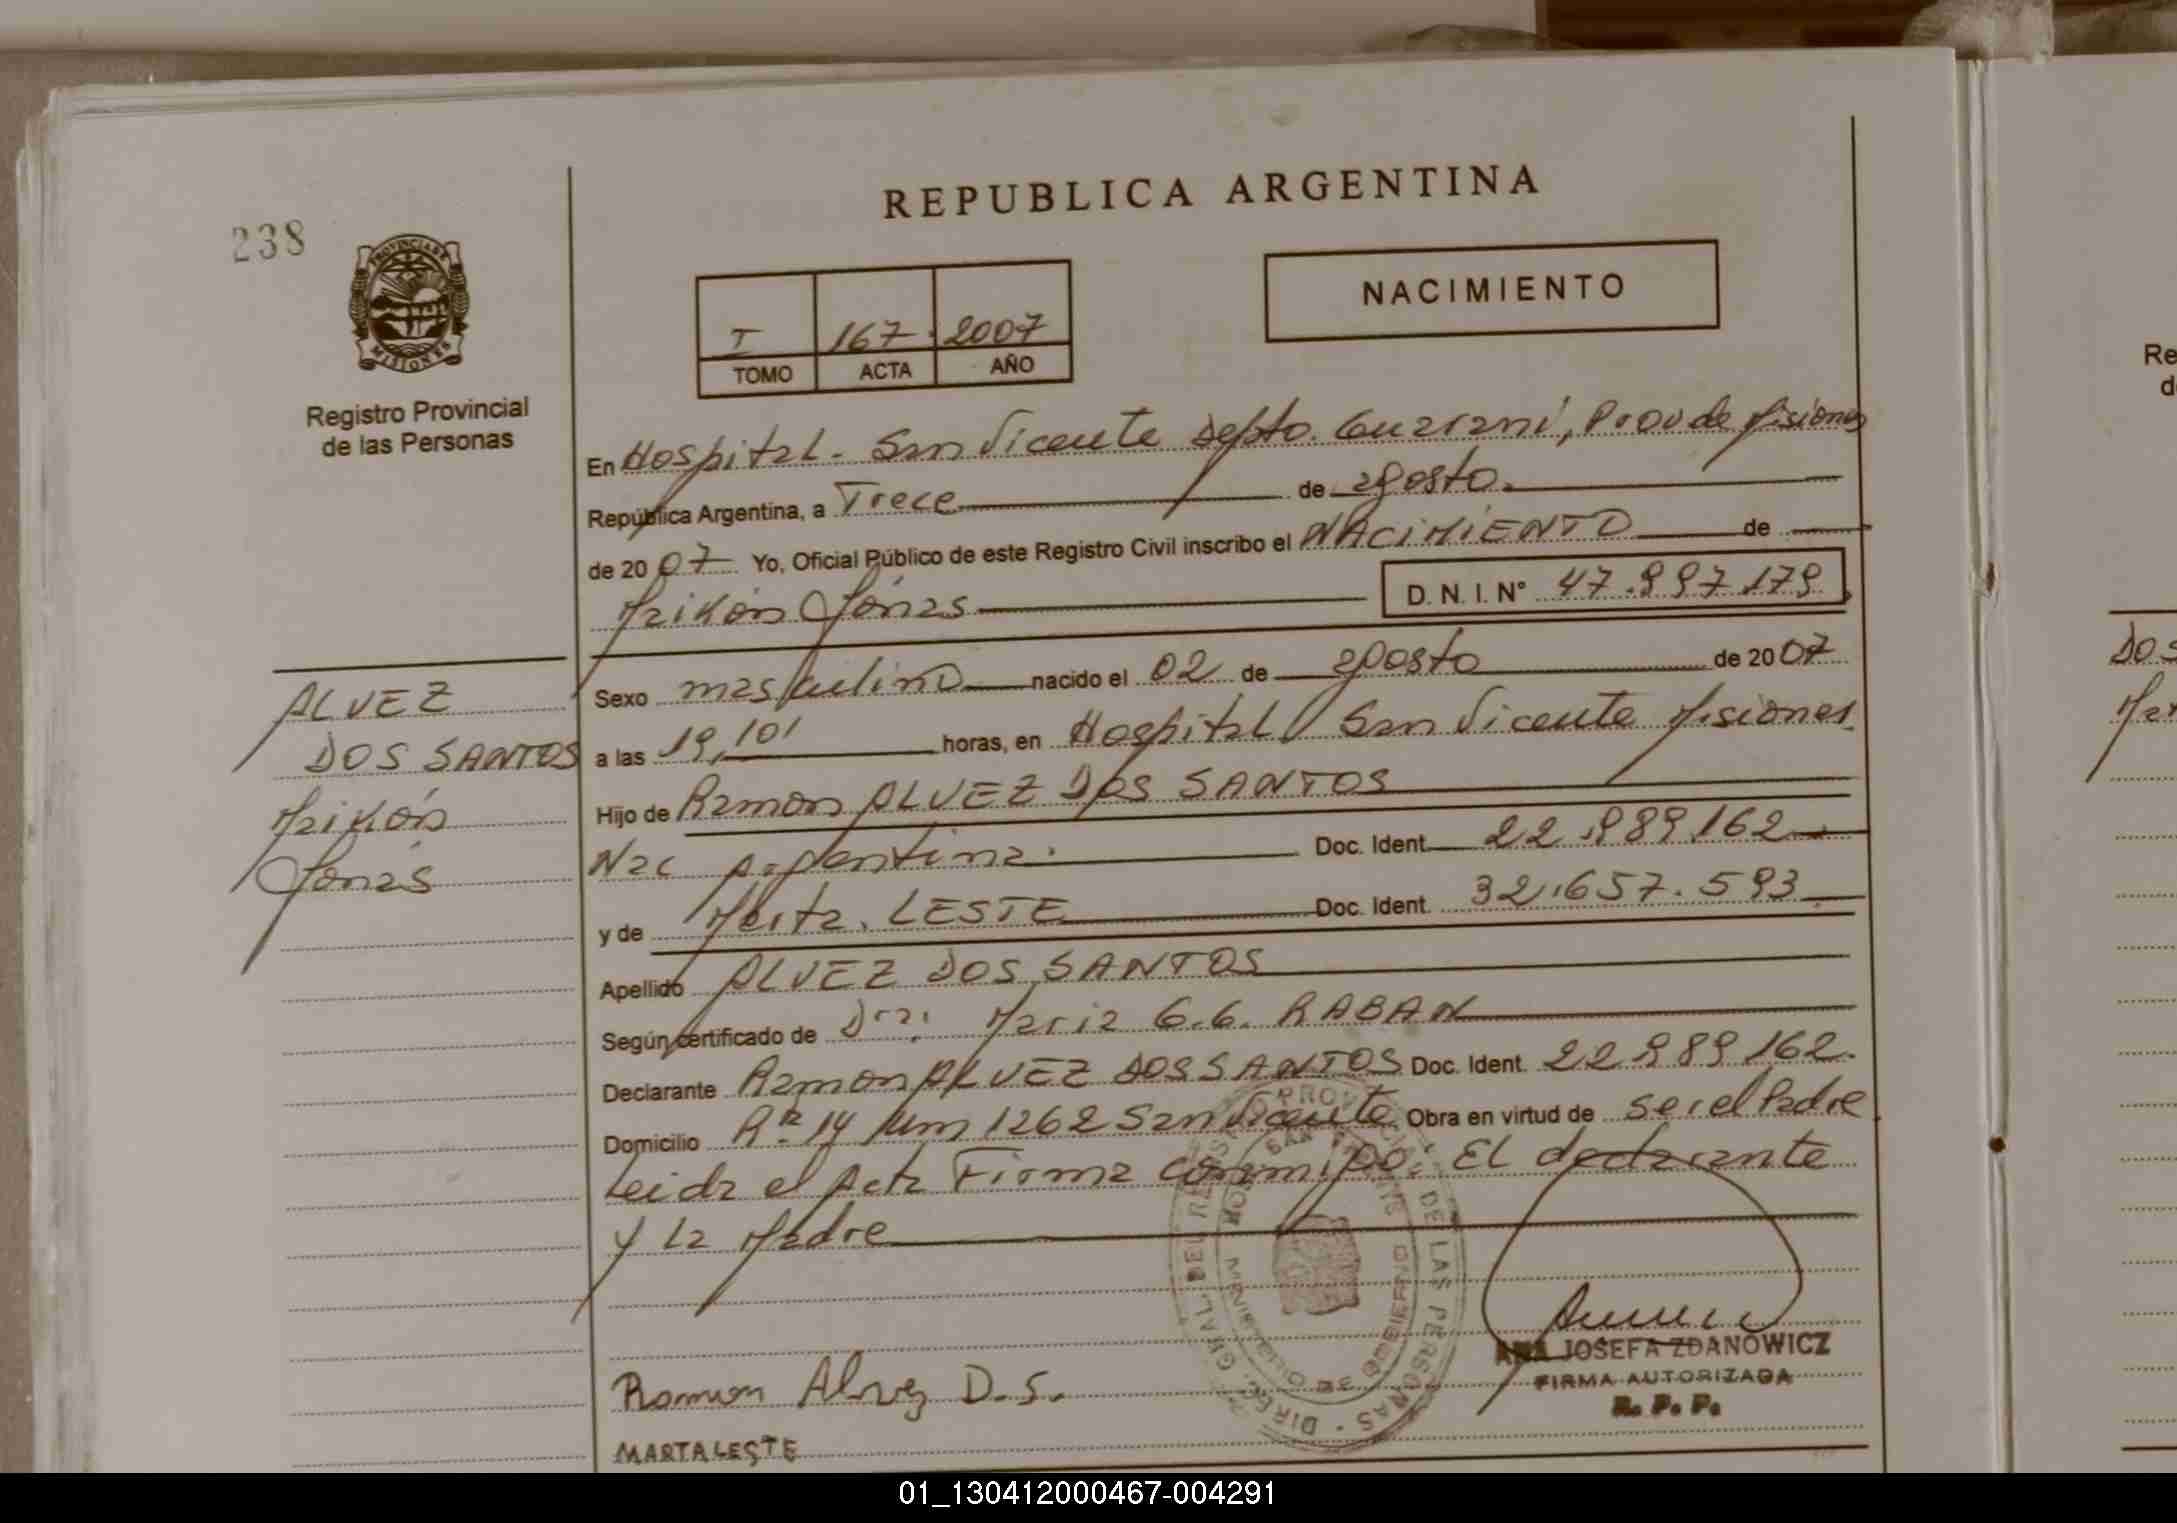 REPUBLICA ARGENTINA
238
PROVINCIA DE
MISIONES
Registro Provincial
de las Personas
NACIMIENTO
I 167 2007
TOMO ACTA AÑO
En Hospital - San Vicente Depto. Guarani, Prov de Misiones
República Argentina, a Trece de agosto.
de 2007 Yo, Oficial Público de este Registro Civil inscribo el NACiMiENTO de
Maikón Jónas D. N. I. N° 47.997.179
Sexo masculino nacido el 02 de agosto de 2007
a las 19,10' horas, en Hospital San Vicente Misiones
Hijo de Ramon ALVEZ DOS SANTOS
Nac Argentina. Doc. Ident. 22.989.162
y de Marta. LESTE Doc. Ident. 32.657.593
Apellido ALVEZ DOS SANTOS
Según certificado de Dra. Maria G.G. RABAN
Declarante Ramon ALVEZ DOS SANTOS Doc. Ident. 22.989.162.
Domicilio Ra 14 Km 1262 San Vicente Obra en virtud de ser el Padre
Leida el Acta Firma conmigo: El declarante
y la Madre
ALVEZ
DOS SANTOS
Maikón
Jonás
Ramon Alvez D.S.
MARTA LESTE
ANA JOSEFA ZDANOWICZ
FIRMA AUTORIZADA
R. P. P.
DE LAS PERSONAS
01_130412000467-004291